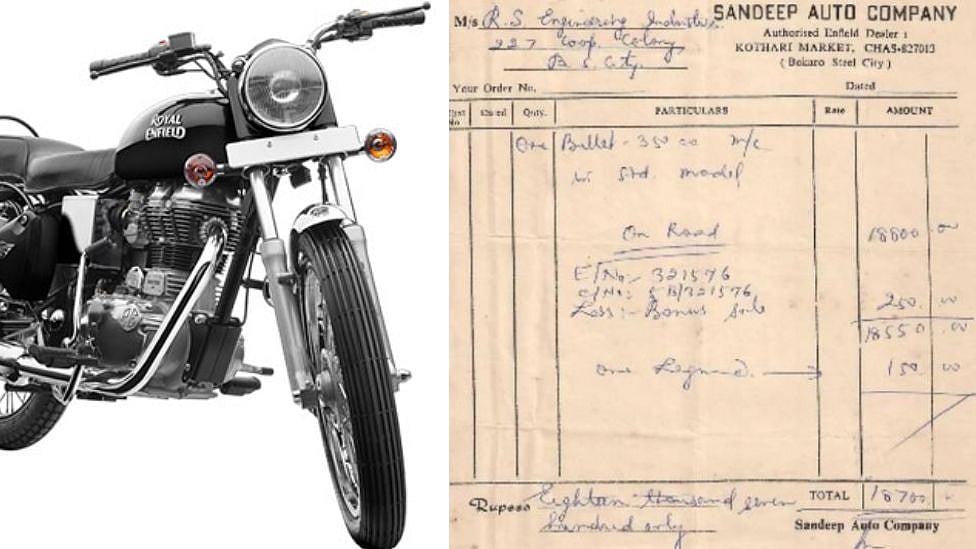 ROYAL
ENFIELD
M/s R. S. Engineering Industries
227 Coop. Colony
B. S. City
SANDEEP AUTO COMPANY
Authorised Enfield Dealer :
KOTHARI MARKET, CHAS-827013
( Bokaro Steel City )
Your Order No. Dated
No Dated Qnty. PARTICULARS Rate AMOUNT
One Bullet - 350 cc m/c
std. model
On Road 18800 .00
E/No:- 321576
C/No:- 5B/321576
Less:- Bonus 250 .00
18550 .00
one Legguard 150 00
Rupees Eighteen thousand seven
hundred only
TOTAL 18700
Sandeep Auto Company